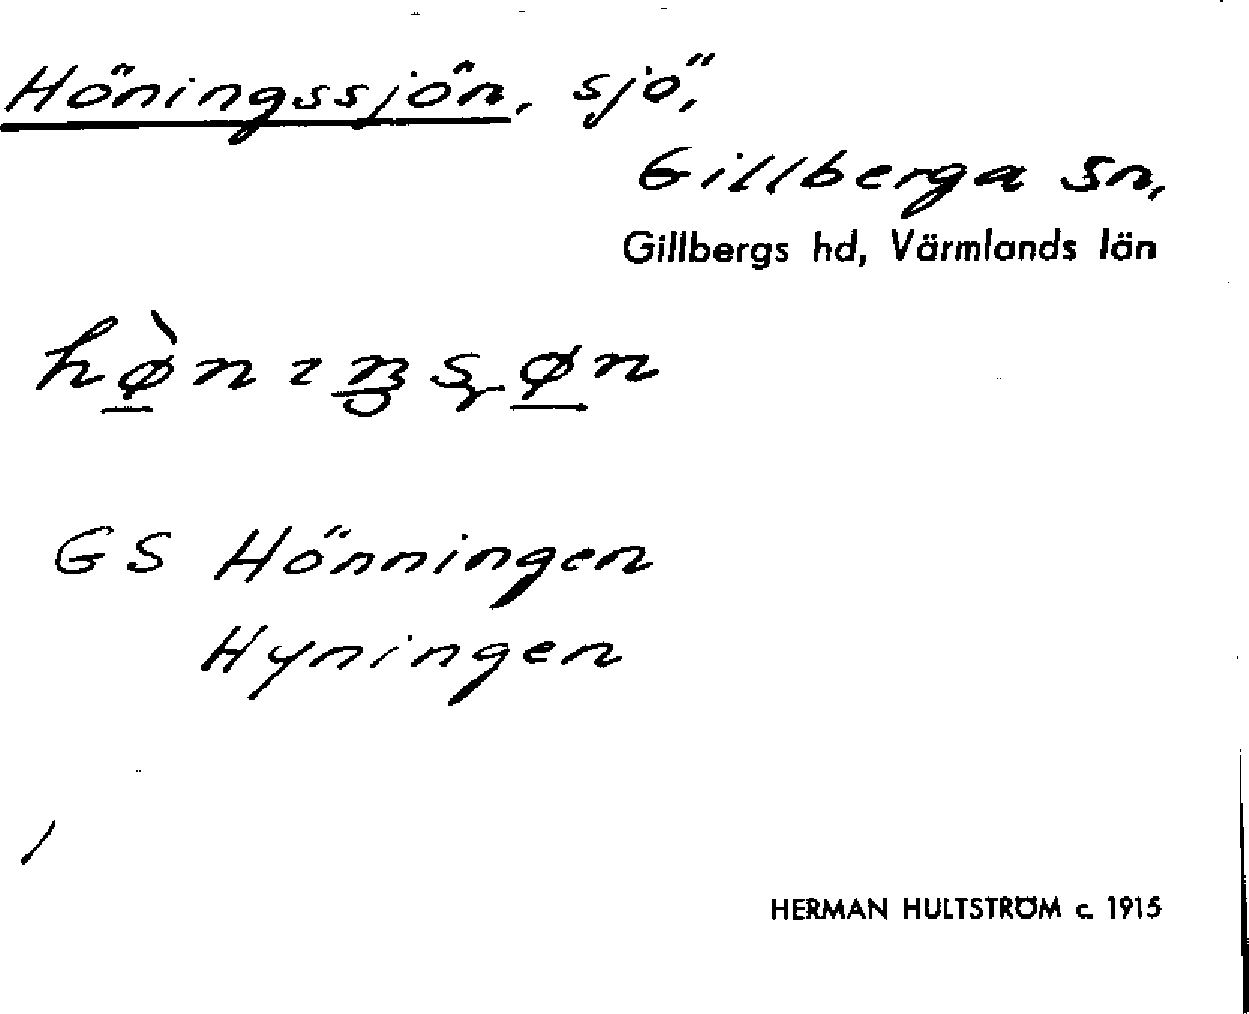 Höningssjön, sjö,
Gillberga Sn,
Gillbergs hd, Värmlands län
GS Hönningen
Hyningen
HERMAN HULTSTRÖM c. 1915